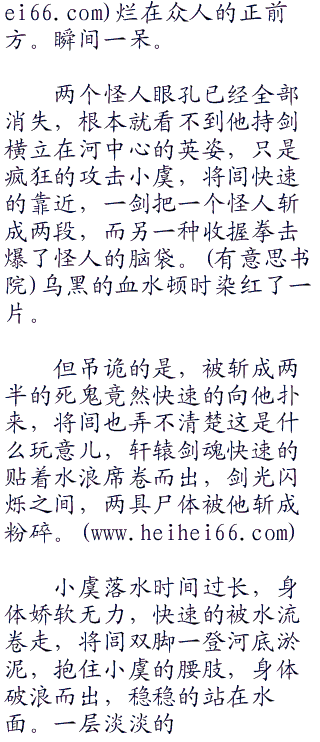 ei66.com)烂在众人的正前
方。瞬间一呆。
两个怪人眼孔已经全部
消失，根本就看不到他持剑
横立在河中心的英姿，只是
疯狂的攻击小虞，将闾快速
的靠近，一剑把一个怪人斩
成两段，而另一种收握拳击
爆了怪人的脑袋。(有意思书
院)乌黑的血水顿时染红了一
片。
但吊诡的是，被斩成两
半的死鬼竟然快速的向他扑
来，将闾也弄不清楚这是什
么玩意儿，轩辕剑魂快速的
贴着水浪席卷而出，剑光闪
烁之间，两具尸体被他斩成
粉碎。(www.heihei66.com)
小虞落水时间过长，身
体娇软无力，快速的被水流
卷走，将闾双脚一登河底淤
泥，抱住小虞的腰肢，身体
破浪而出，稳稳的站在水
面。一层淡淡的